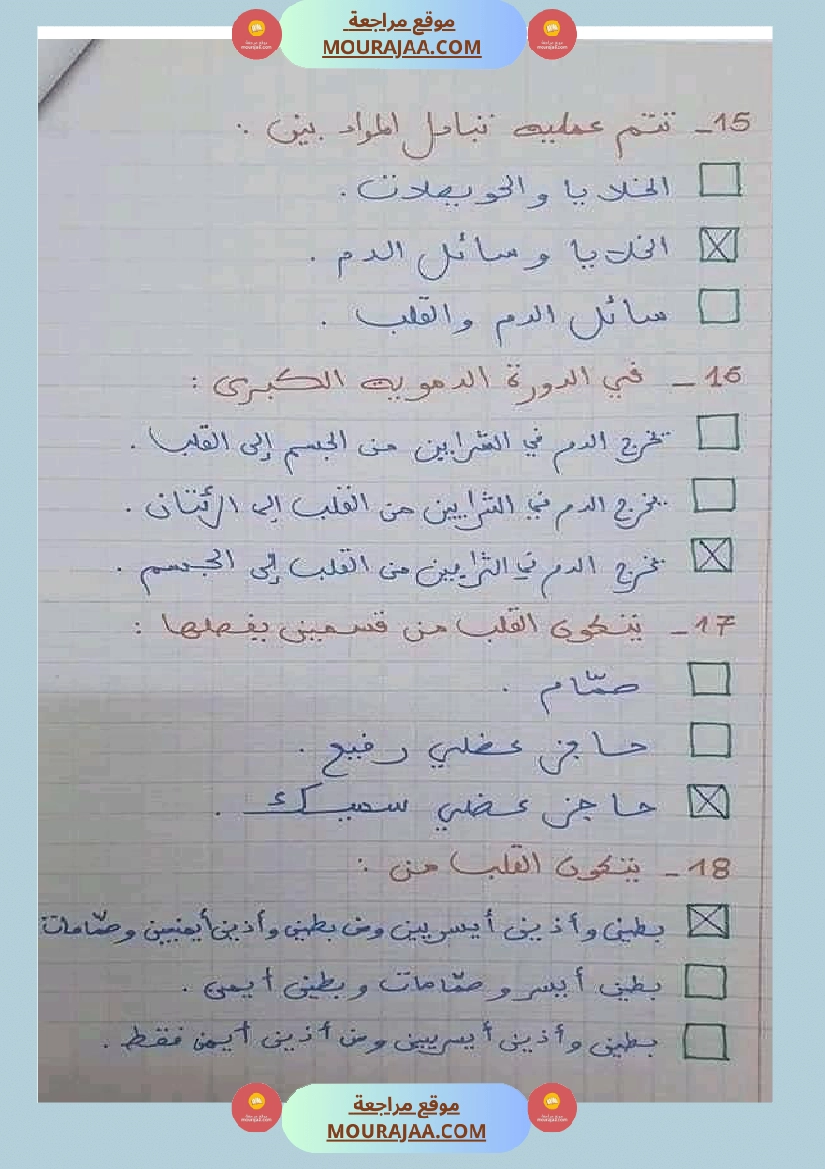 موقع مراجعة
MOURAJAA.COM
15 - تتم عملية تبادل المواد بين :
الخلايا والحويصلات .
الخلايا وسائل الدم .
سائل الدم والقلب .
16 - في الدورة الدموية الكبرى :
يخرج الدم في الشرايين من الجسم إلى القلب .
يخرج الدم في الشرايين من القلب إلى الرئتان .
يخرج الدم في الشرايين من القلب إلى الجسم .
17 - يتكون القلب من قسمين يفصلها :
صمّام .
حاجز عضلي رفيع .
حاجز عضلي سميك .
18 - يتكون القلب من :
بطين وأذين أيسريين ومن بطين وأذين أيمنين وصمّامات
بطين أيسر وصمّامات وبطين أيمن .
بطين وأذين أيسريين ومن أذين أيمن فقط .
موقع مراجعة
MOURAJAA.COM